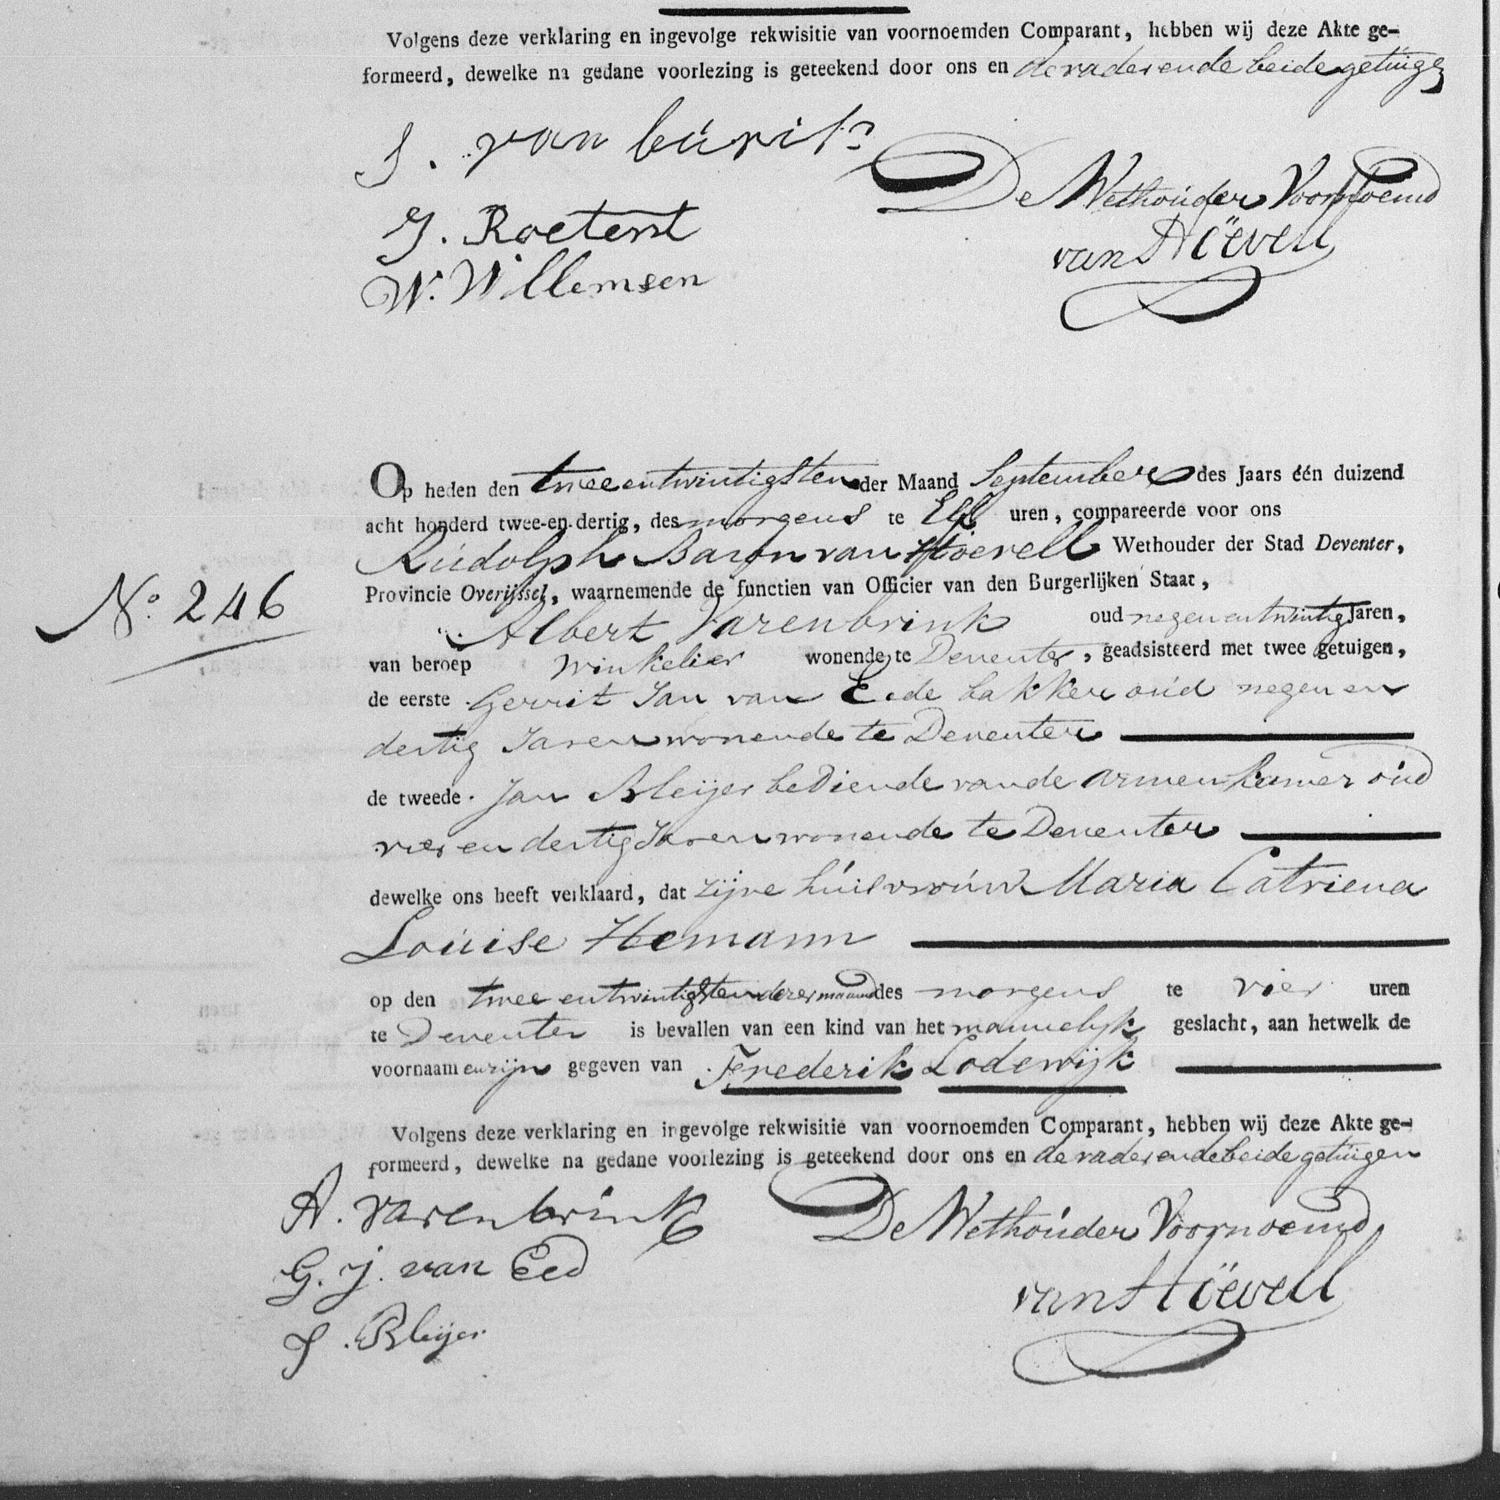 Volgens deze verklaring en ingevolge rekwisitie van voornoemden Comparant, hebben wij deze Akte ge-
formeerd, dewelke na gedane voorlezing is geteekend door ons en de vader en de beide getuigen
J. van
De Wethouder Voornoemd
J. Roetert
van Höevell
W. Willemsen
Op heden den twee en twintigsten der Maand September des Jaars één duizend
acht honderd twee-en-dertig, des morgens te Elf uren, compareerde voor ons
Rudolph Baron van Höevell Wethouder der Stad Deventer,
Provincie Overijssel, waarnemende de functien van Officier van den Burgerlijken Staat,
No. 246
Albert Varenbrink oud negen en twintig Jaren,
van beroep Winkelier wonende te Deventer, geadsisteerd met twee getuigen,
de eerste Gerrit Jan van Eede bakker oud negen en
dertig Jaren wonende te Deventer
de tweede Jan Bleijer bediende van de armenkamer oud
vier en dertig Jaren wonende te Deventer
dewelke ons heeft verklaard, dat zijne huisvrouw Maria Catriena
Louise Hemann
op den twee en twintigsten dezer maand des morgens te vier uren
te Deventer is bevallen van een kind van het mannelijk geslacht, aan hetwelk de
voornaam en zijn gegeven van Frederik Lodewijk
Volgens deze verklaring en ingevolge rekwisitie van voornoemden Comparant, hebben wij deze Akte ge-
formeerd, dewelke na gedane voorlezing is geteekend door ons en de vader en de beide getuigen
A. varenbrink
De Wethouder Voornoemd
G. J. van Eed
van Höevell
J. Bleijer